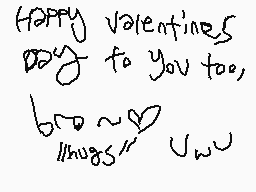 Happy valentines
Day to you too,
bro ~♡
"hugs" UwU